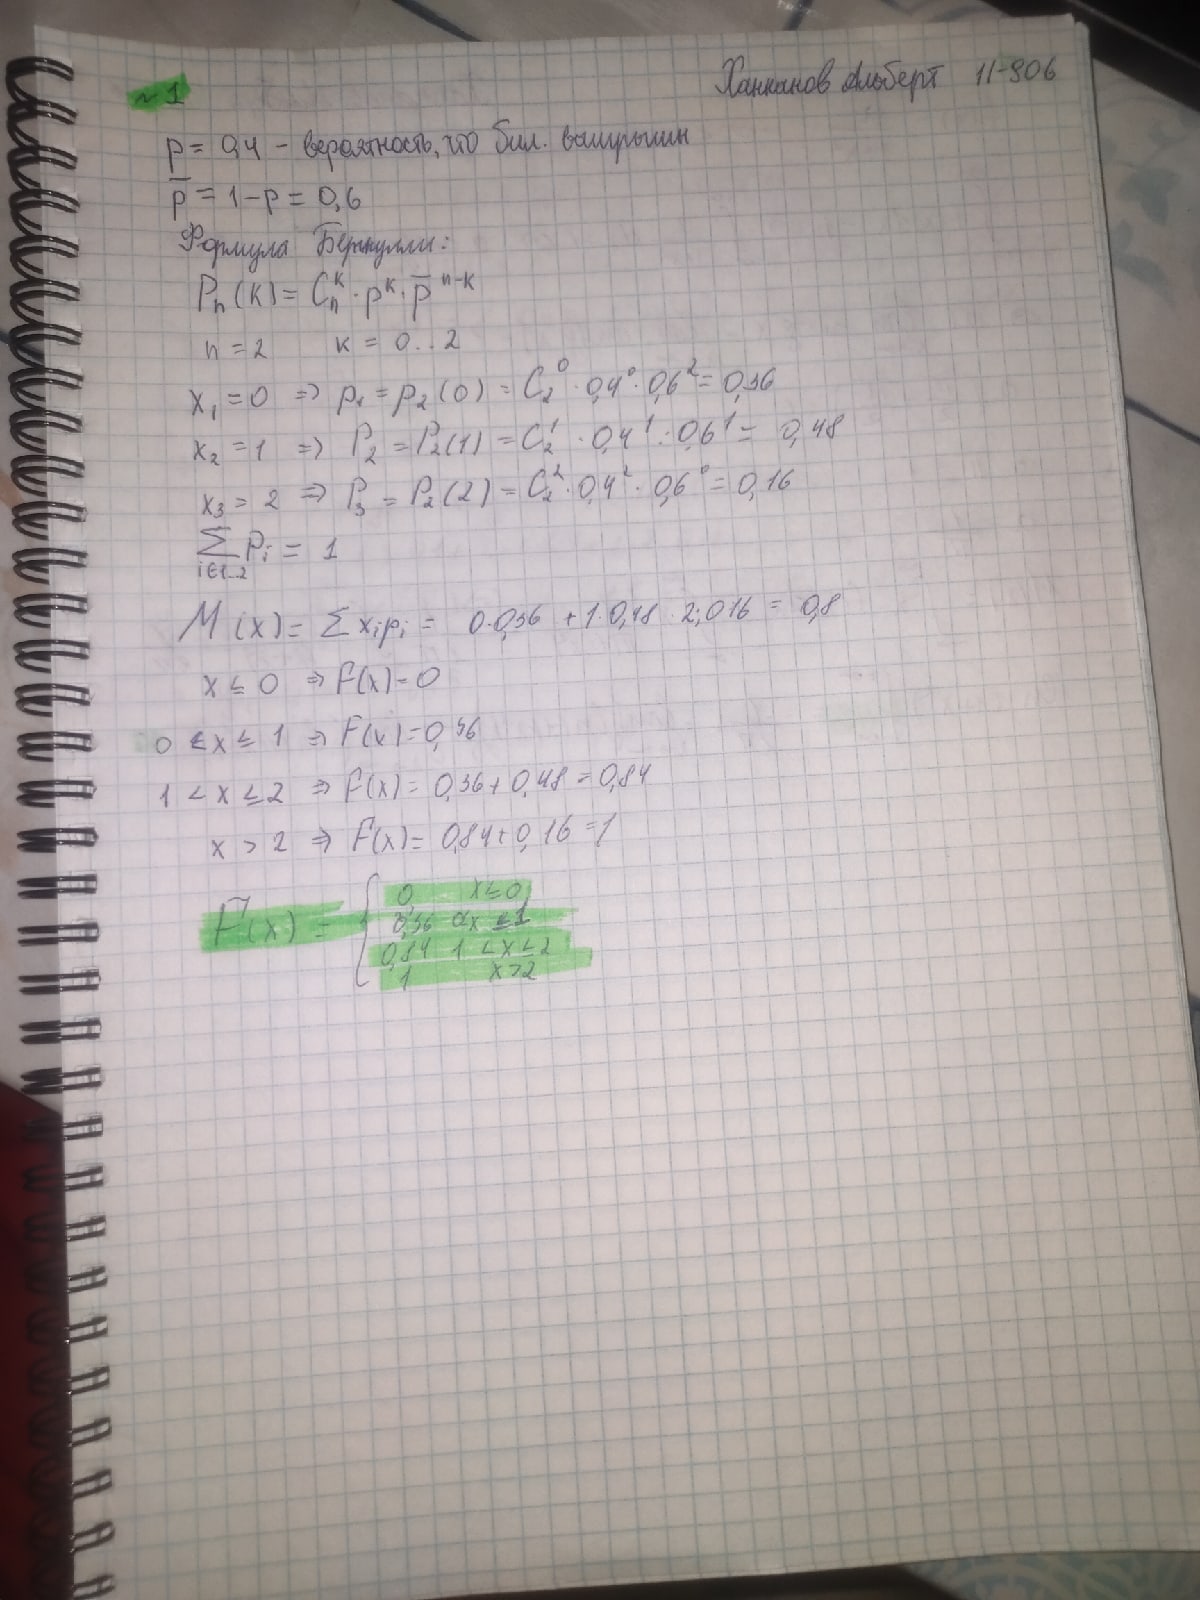 ~1
Ханнанов Альберт 11-906
p = 0,4 - вероятность, что бил. выигрышн
p̅ = 1-p = 0,6
Формула Бернулли:
Pₙ(k) = Cₙᵏ · pᵏ · p̅ ⁿ⁻ᵏ
n = 2 k = 0..2
x₁ = 0 => p₁ = p₂(0) = C₂⁰ · 0,4⁰ · 0,6² = 0,36
x₂ = 1 => P₂ = P₂(1) = C₂¹ · 0,4¹ · 0,6¹ = 0,48
x₃ = 2 => P₃ = P₂(2) = C₂² · 0,4² · 0,6⁰ = 0,16
∑ Pᵢ = 1
i∈1..2
M(x) = ∑ xᵢpᵢ = 0·0,36 + 1·0,48 · 2;016 = 0,8
x ≤ 0 => F(x) = 0
0 < x ≤ 1 => F(x) = 0,36
1 < x ≤ 2 => F(x) = 0,36 + 0,48 = 0,84
x > 2 => F(x) = 0,84 + 0,16 = 1
F(x) = { 0, x ≤ 0
0,36 0<x ≤ 1
0,84 1 < x ≤ 2
1 x > 2